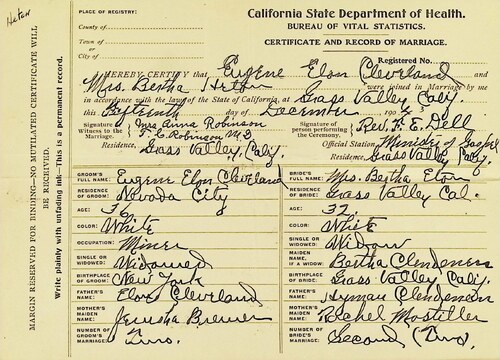 Heton
PLACE OF REGISTRY:
County of
Town of
or
City of
California State Department of Health.
BUREAU OF VITAL STATISTICS.
CERTIFICATE AND RECORD OF MARRIAGE.
Registered No.
I HEREBY CERTIFY that Eugene Elon Cleveland and
Mrs. Bertha Heton were joined in Marriage by me
in accordance with the laws of the State of California, at Grass Valley Calif.
this Fifteenth day of December 190
Signature of Witness to the Marriage, Mrs Anna Robinson
F. E. Robinson M.D.
Residence, Grass Valley, Calif.
Signature of person performing the Ceremony, Rev. F. E. Dell
Official Station Minister of Gospel
Residence, Grass Valley Calif.
GROOM'S FULL NAME: Eugene Elon Cleveland
RESIDENCE OF GROOM: Nevada City
AGE: 36
COLOR: White
OCCUPATION: Miner
SINGLE OR WIDOWED: Widowed
BIRTHPLACE OF GROOM: New York
FATHER'S NAME: Elon Cleveland
MOTHER'S MAIDEN NAME: Jerusha Brewer
NUMBER OF GROOM'S MARRIAGE: Two.
BRIDE'S FULL NAME: Mrs. Bertha Eton
RESIDENCE OF BRIDE: Grass Valley Cal.
AGE: 32
COLOR: White
SINGLE OR WIDOWED: Widow
MAIDEN NAME, IF A WIDOW: Bertha Clendeners
BIRTHPLACE OF BRIDE: Grass Valley Calif.
FATHER'S NAME: Hyman Clendenen
MOTHER'S MAIDEN NAME: Rachel Mosteller
NUMBER OF BRIDE'S MARRIAGE: Second (Two).
MARGIN RESERVED FOR BINDING—NO MUTILATED CERTIFICATE WILL BE RECEIVED.
Write plainly with unfading ink—This is a permanent record.